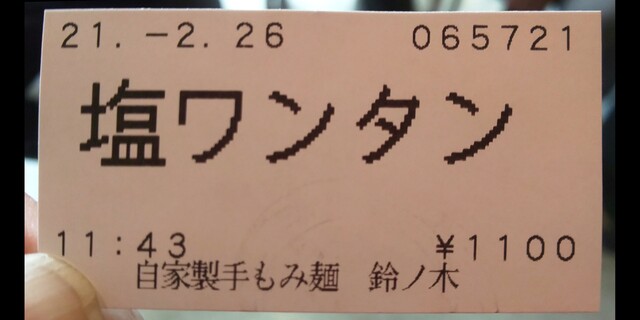 21.-2.26 065721
塩ワンタン
11:43 ¥1100
自家製手もみ麺 鈴ノ木